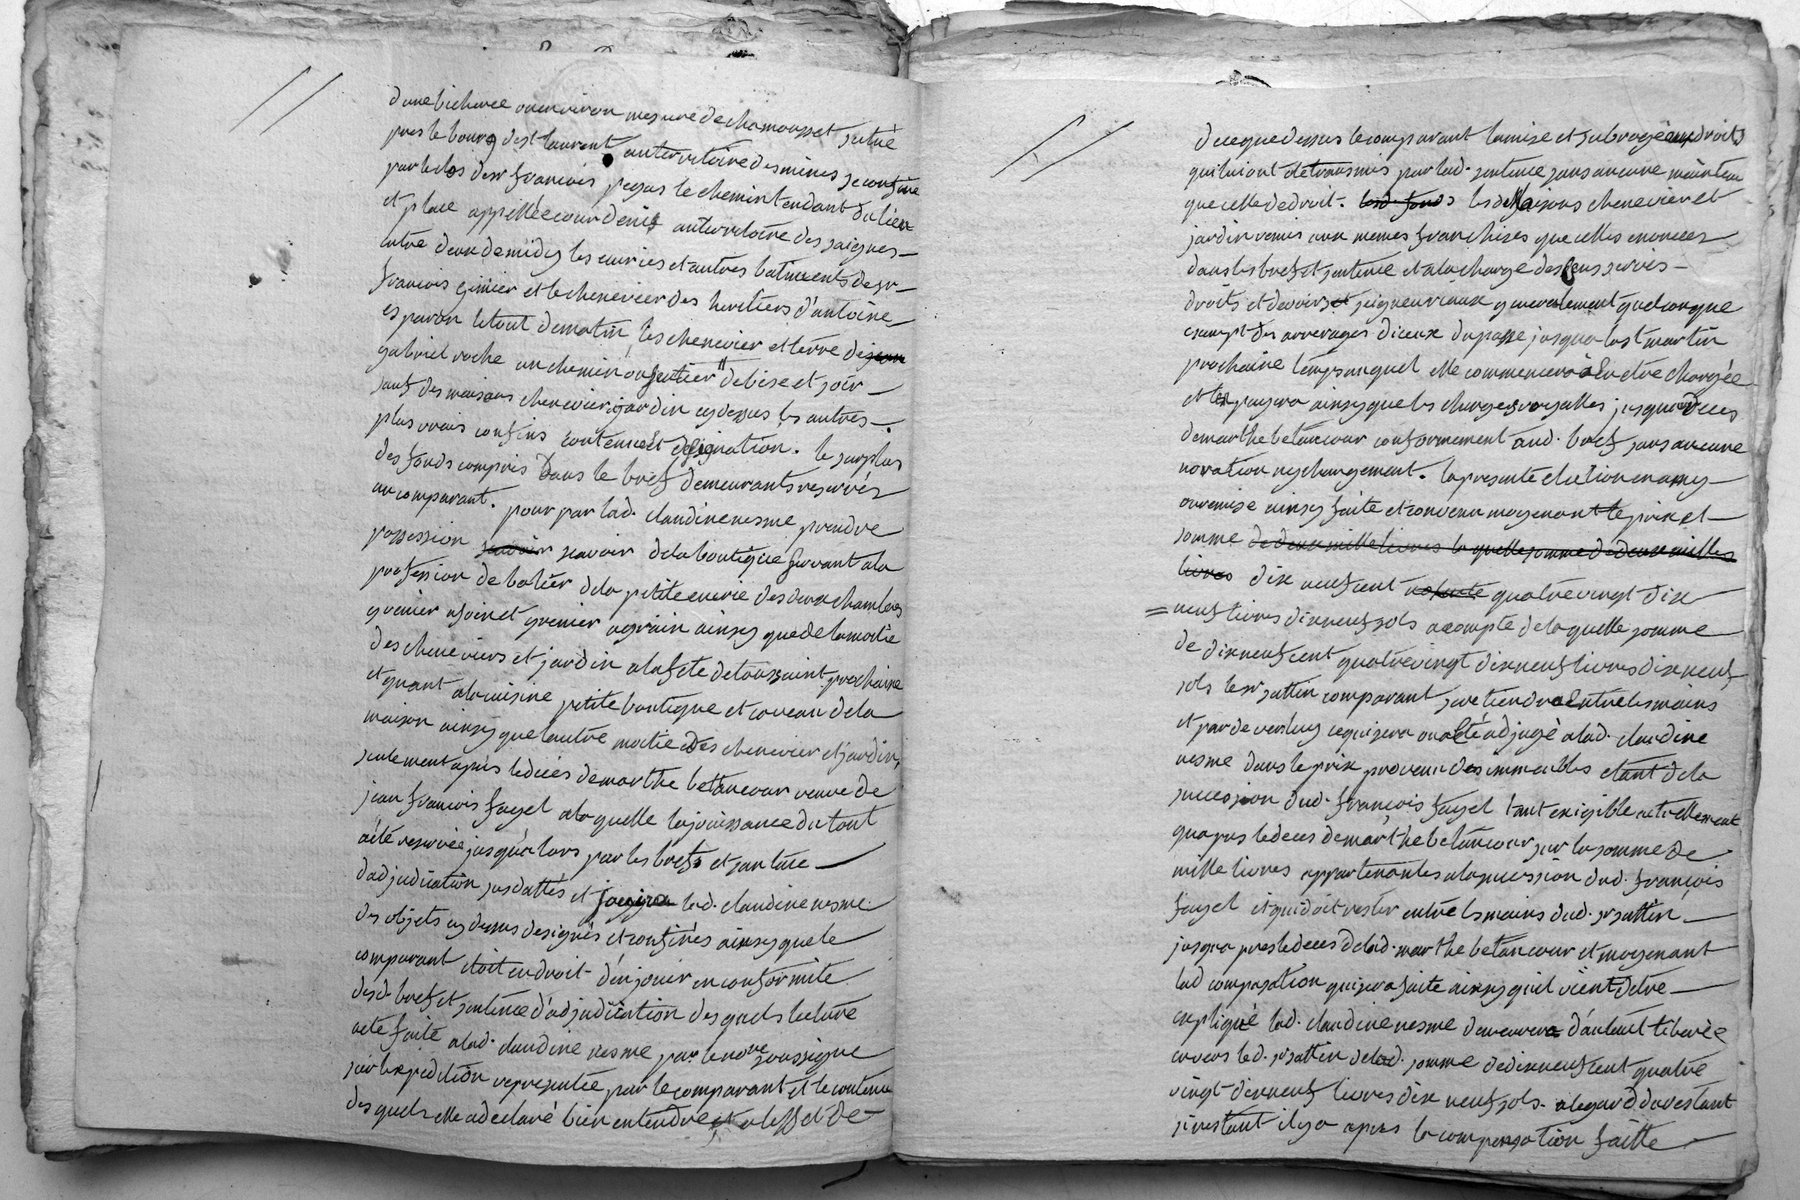 d'une bicherée ou environ mesure de chamousset situé
pres le bourg de st laurent au territoire des mines se confine
par le clos de sr françois pegas le chemin tendant du lieu
et place appellée cour denis au territoire des saignes
entre deux de midy les ecuries et autres batiments de sr
françois gimier et le chenevier des heritiers d'antoine
esparon le tout de matin, les chenevier et terre de jean
gabriel roche un chemin ou sentier de bise et soir
sauf des maisons chenevier jardin cy dessus les autres
plus vrais confins contenue et designation. le surplus
des fonds compris dans le bref demeurants reservés
au comparant. pour par lad. claudine nesme prendre
possession scavoir scavoir de la boutique servant a la
profession de batier de la petite ecurie des deux chambres
grenier a foin et grenier a grain ainsy que de la moitié
des cheneviers et jardin a la fete de toussaint prochaine
et quant a la cuisine petite boutique et caveau de la
maison ainsy que l'autre moitié des chenevier et jardin,
seulement après le deces de marthe betancour veuve de
jean françois fayel a laquelle la jouissance du tout
a été reservée jusqu'alors par les brefs et santance
d'adjudication susdattés et jouira lad. claudine nesme
des objets cy dessus designés et confinés ainsy que le
comparant etoit en droit d'en jouir en conformité
desd. bref et sentence d'adjudication des quels lecture
a eté faite a lad. claudine nesme par le nore soussigne
sur l'expedition representée par le comparant et le contenu
des quels elle a declaré bien entendre et a l'effet de
de ce que dessus le comparant la mise et subrogée aux droits
qui lui ont eté transmis par lad. sentence sans aucune maintenue
que celle de droit. lesd. fonds lesd. Maisons chenevier et
jardin remis aux memes franchises que celles enoncées
dans les bref et sentence et a la charge des Cens servis
droits et devoirs et seigneuriaux generalement quelconque
exempt des arrerages d'iceux du passe jusqu'a la st martin
prochaine temps auquel elle commencera a en etre chargée
et les payera ainsy que les charges royalles jusqu'au deces
de marthe betancour conformement aud. bref sans aucune
novation ny changement. la presente election en amy
ou remise ainsy faite et convenu moyenant le prix et
somme de deux mille livres la quelle somme de deux milles
livres dix neuf cent nonante quatre vingt dix
= neuf livres dix neuf sols a compte de la quelle somme
de dix neuf cent quatre vingt dix neuf livres dix neuf
sols le sr sattin comparant se retiendra entre les mains
et par devers luy ce qui sera ou a eté adjugé a lad. claudine
nesme dans le prix provenu des immeubles etant de la
succession dud. françois fayel tant exigible actuellement
qu'apres le deces de marthe betancour sur la somme de
mille livres appartenantes a la succession dud. françois
fayel et qui doit rester entre les mains dud. sr sattin
jusqu'a pres le deces de lad. marthe betancour et moyenant
lad compensation qui sera faite ainsy qu'il vient d'etre
expliqué lad. claudine nesme demeurera d'autant liberée
envers led. sr sattin de lad. somme de dix neuf cent quatre
vingt dix neuf livres dix neuf sols. a l'egard du restant
si restant il y a apres la compensation faitte